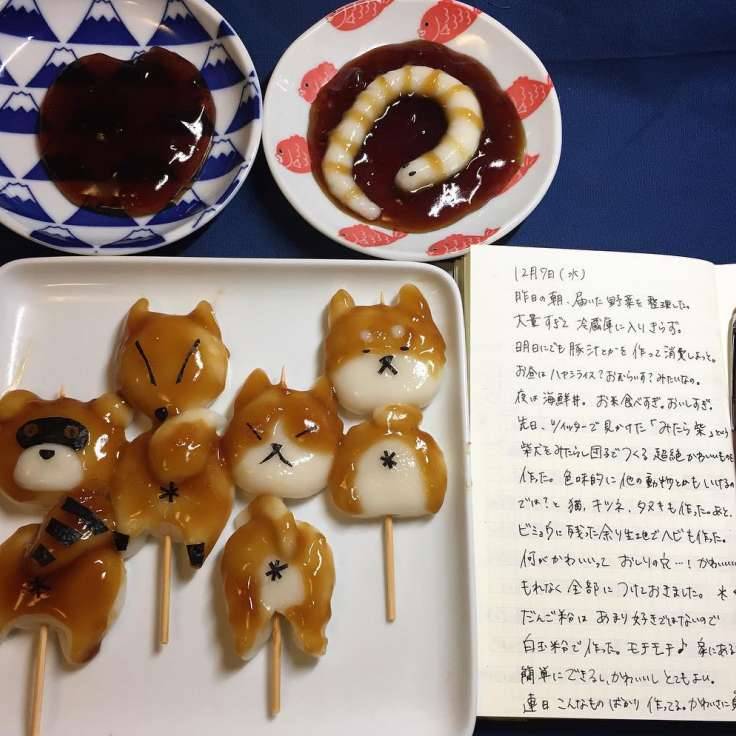 12月7日(水)
昨日の朝、届いた野菜を整理した。
大量すぎて冷蔵庫に入りきらず。
明日にでも豚汁とかを作って消費しよっと。
お昼はハヤシライス?おむらいす?みたいなの。
夜は海鮮丼。お米食べすぎ。おいしすぎ。
先日、ツイッターで見かけた「みたら柴」という
柴犬をみたらし団子でつくる超絶かわいいものを
作った。色味的に他の動物とかもいけるの
では?と猫、キツネ、タヌキも作った。あと、
ビミョウに残った余り生地でヘビも作った。
何がかわいいって おしりの穴…!かわいい
もれなく全部につけておきました。米の
だんご粉は あまり好きではないので
白玉粉で作った。モチモチ♪家にある
簡単にできるし、かわいいし とてもよい。
連日 こんなものばかり 作ってる。かわいさに